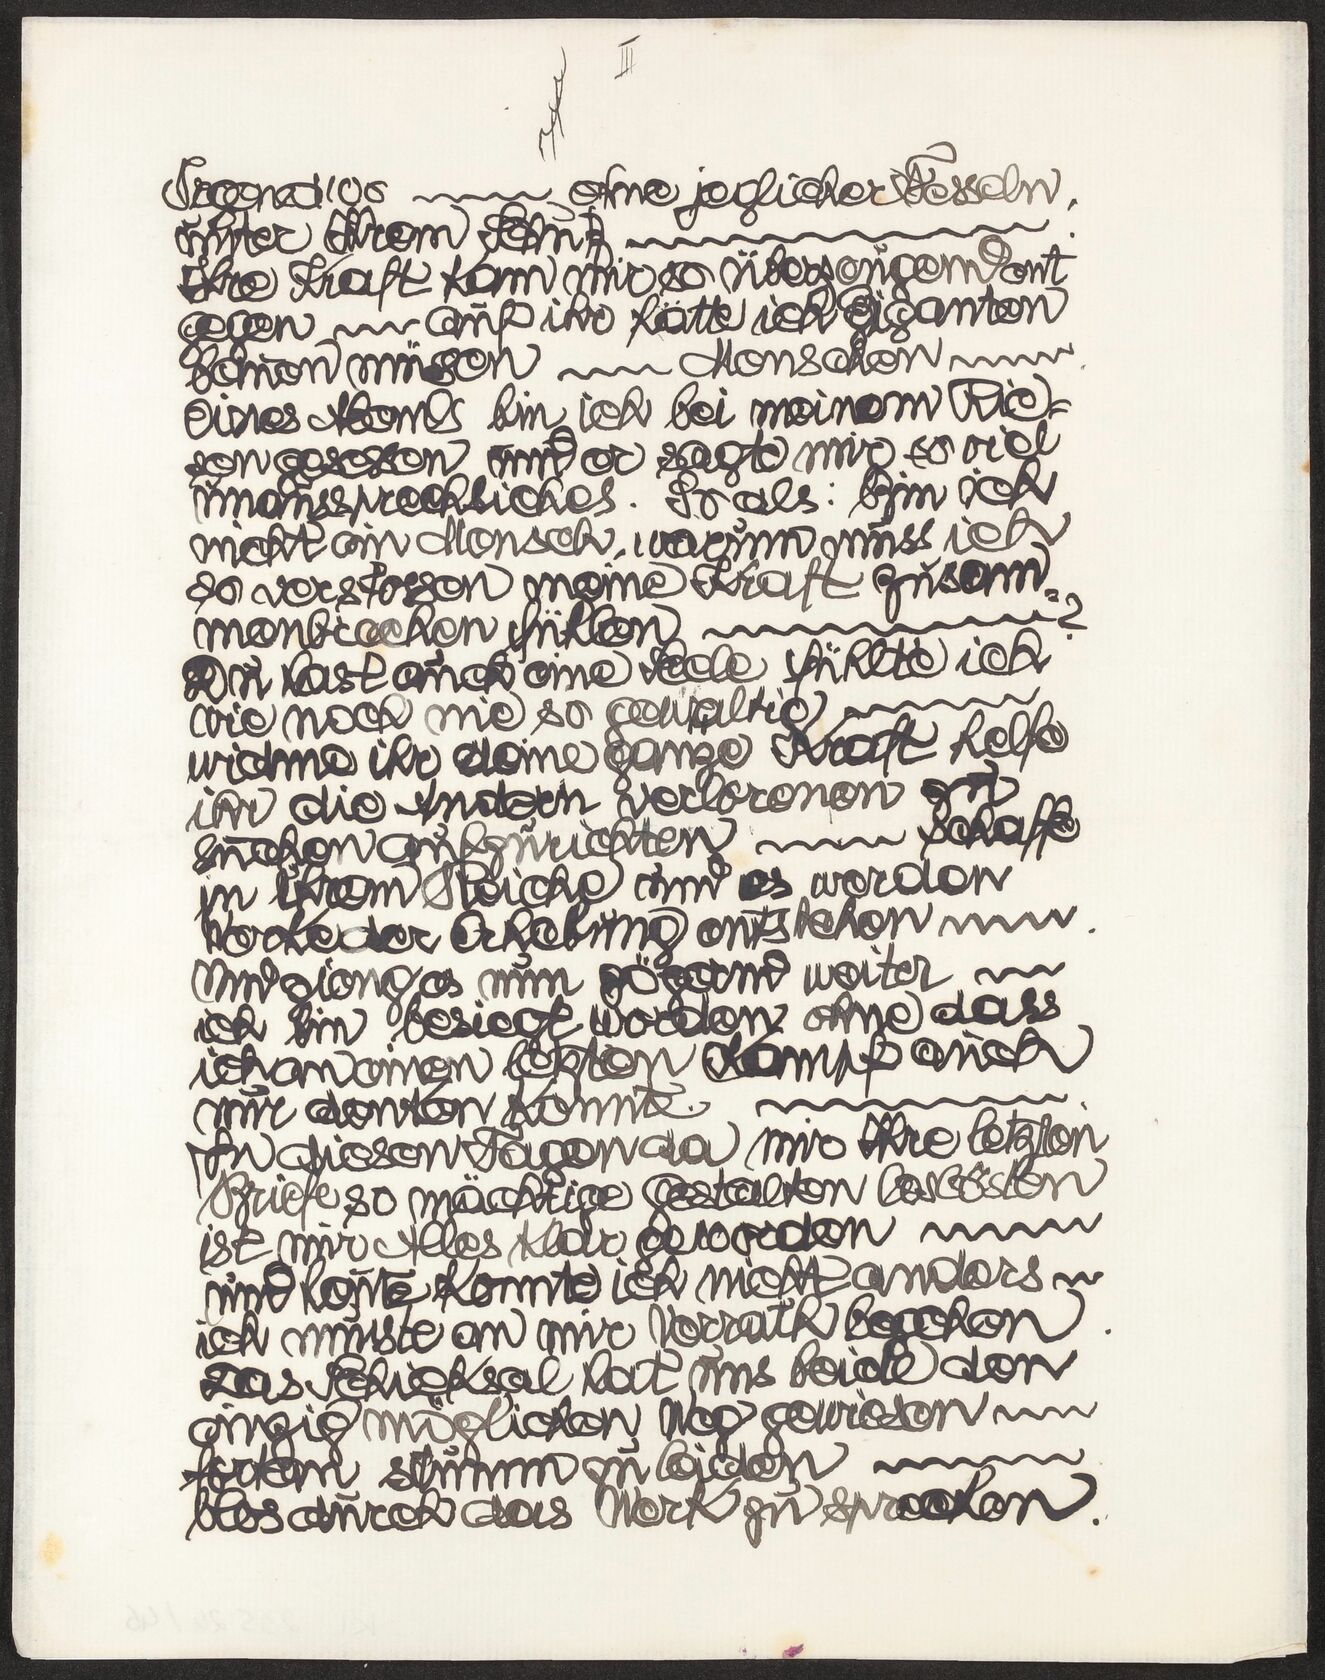 III
ohne jeglicher Fesseln,
unter Ihrem Schutz
Ihre Kraft kam mir so überzeugend ent
gegen ~~~ auf ihr hätte ich Giganten
bauen müssen ~~~ Menschen ~~~.
Eines Abends bin ich bei meinem Rie-
sen gesessen und er sagte mir so viel
unaussprechliches. So als: bin ich
nicht ein Mensch, warum muss ich
so verstossen meine Kraft zusam=
menbrechen fühlen ~~~?
Du hast auch eine Seele fühlte ich
wie noch nie so gewaltig ~~~
widme ihr deine ganze Kraft helfe
ihr die Andern verlorenen zu
suchen aufzurichten ~~~ schaffe
in ihrem Reiche und es werden
Werke der Erhebung entstehen ~~~.
Und gieng es nun zögernd weiter ~~
ich bin besiegt worden ohne dass
ich an einen letzten Kampf auch
nur denken konnte. ~~~.
In diesen Tagen da mir Ihre letzten
Briefe so mächtige Gestalten loslösten
ist mir Alles klar geworden ~~~
und heute konnte ich nicht anders ~
ich musste an mir Verrath begehen.
Das Schicksal hat uns beide den
einzig möglichen Weg gewiesen ~~~
fortan stumm zu leiden ~~~
blos durch das Werk zu sprechen.